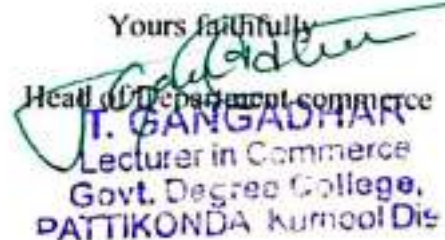 Yours faithfully
Head of Department commerce
T. GANGADHAR
Lecturer in Commerce
Govt. Degree College,
PATTIKONDA Kurnool Dis